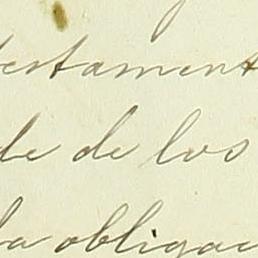 testament
de de los
la obligac